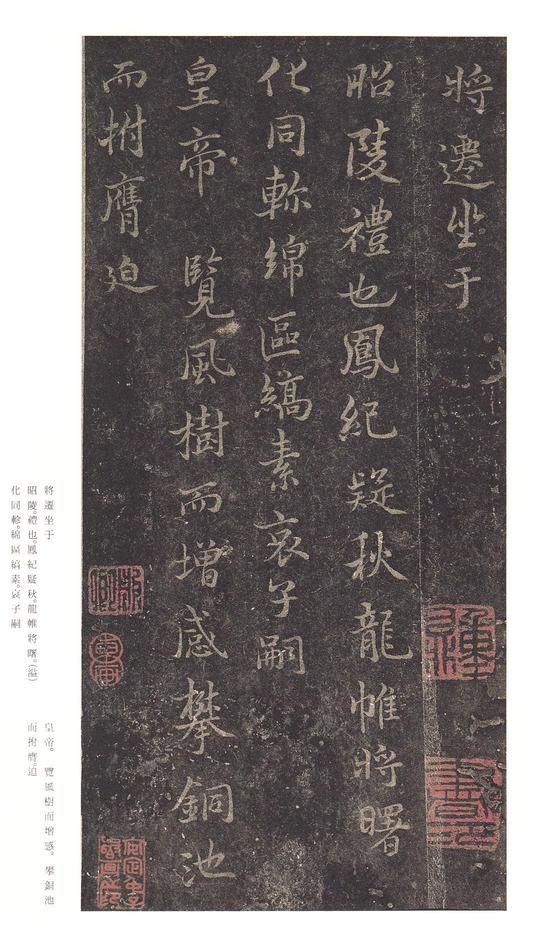 將遷坐于
昭陵禮也鳳紀疑秋龍帷將曙
化同軫綿區縞素哀子嗣
皇帝 覽風樹而增感攀銅池
而拊膺迫
將遷坐于
昭陵。禮也。鳳紀疑秋。龍帷將曙。(溢)
化同軫。綿區縞素。哀子嗣
皇帝。 覽風樹而增感。攀銅池
而拊膺。迫